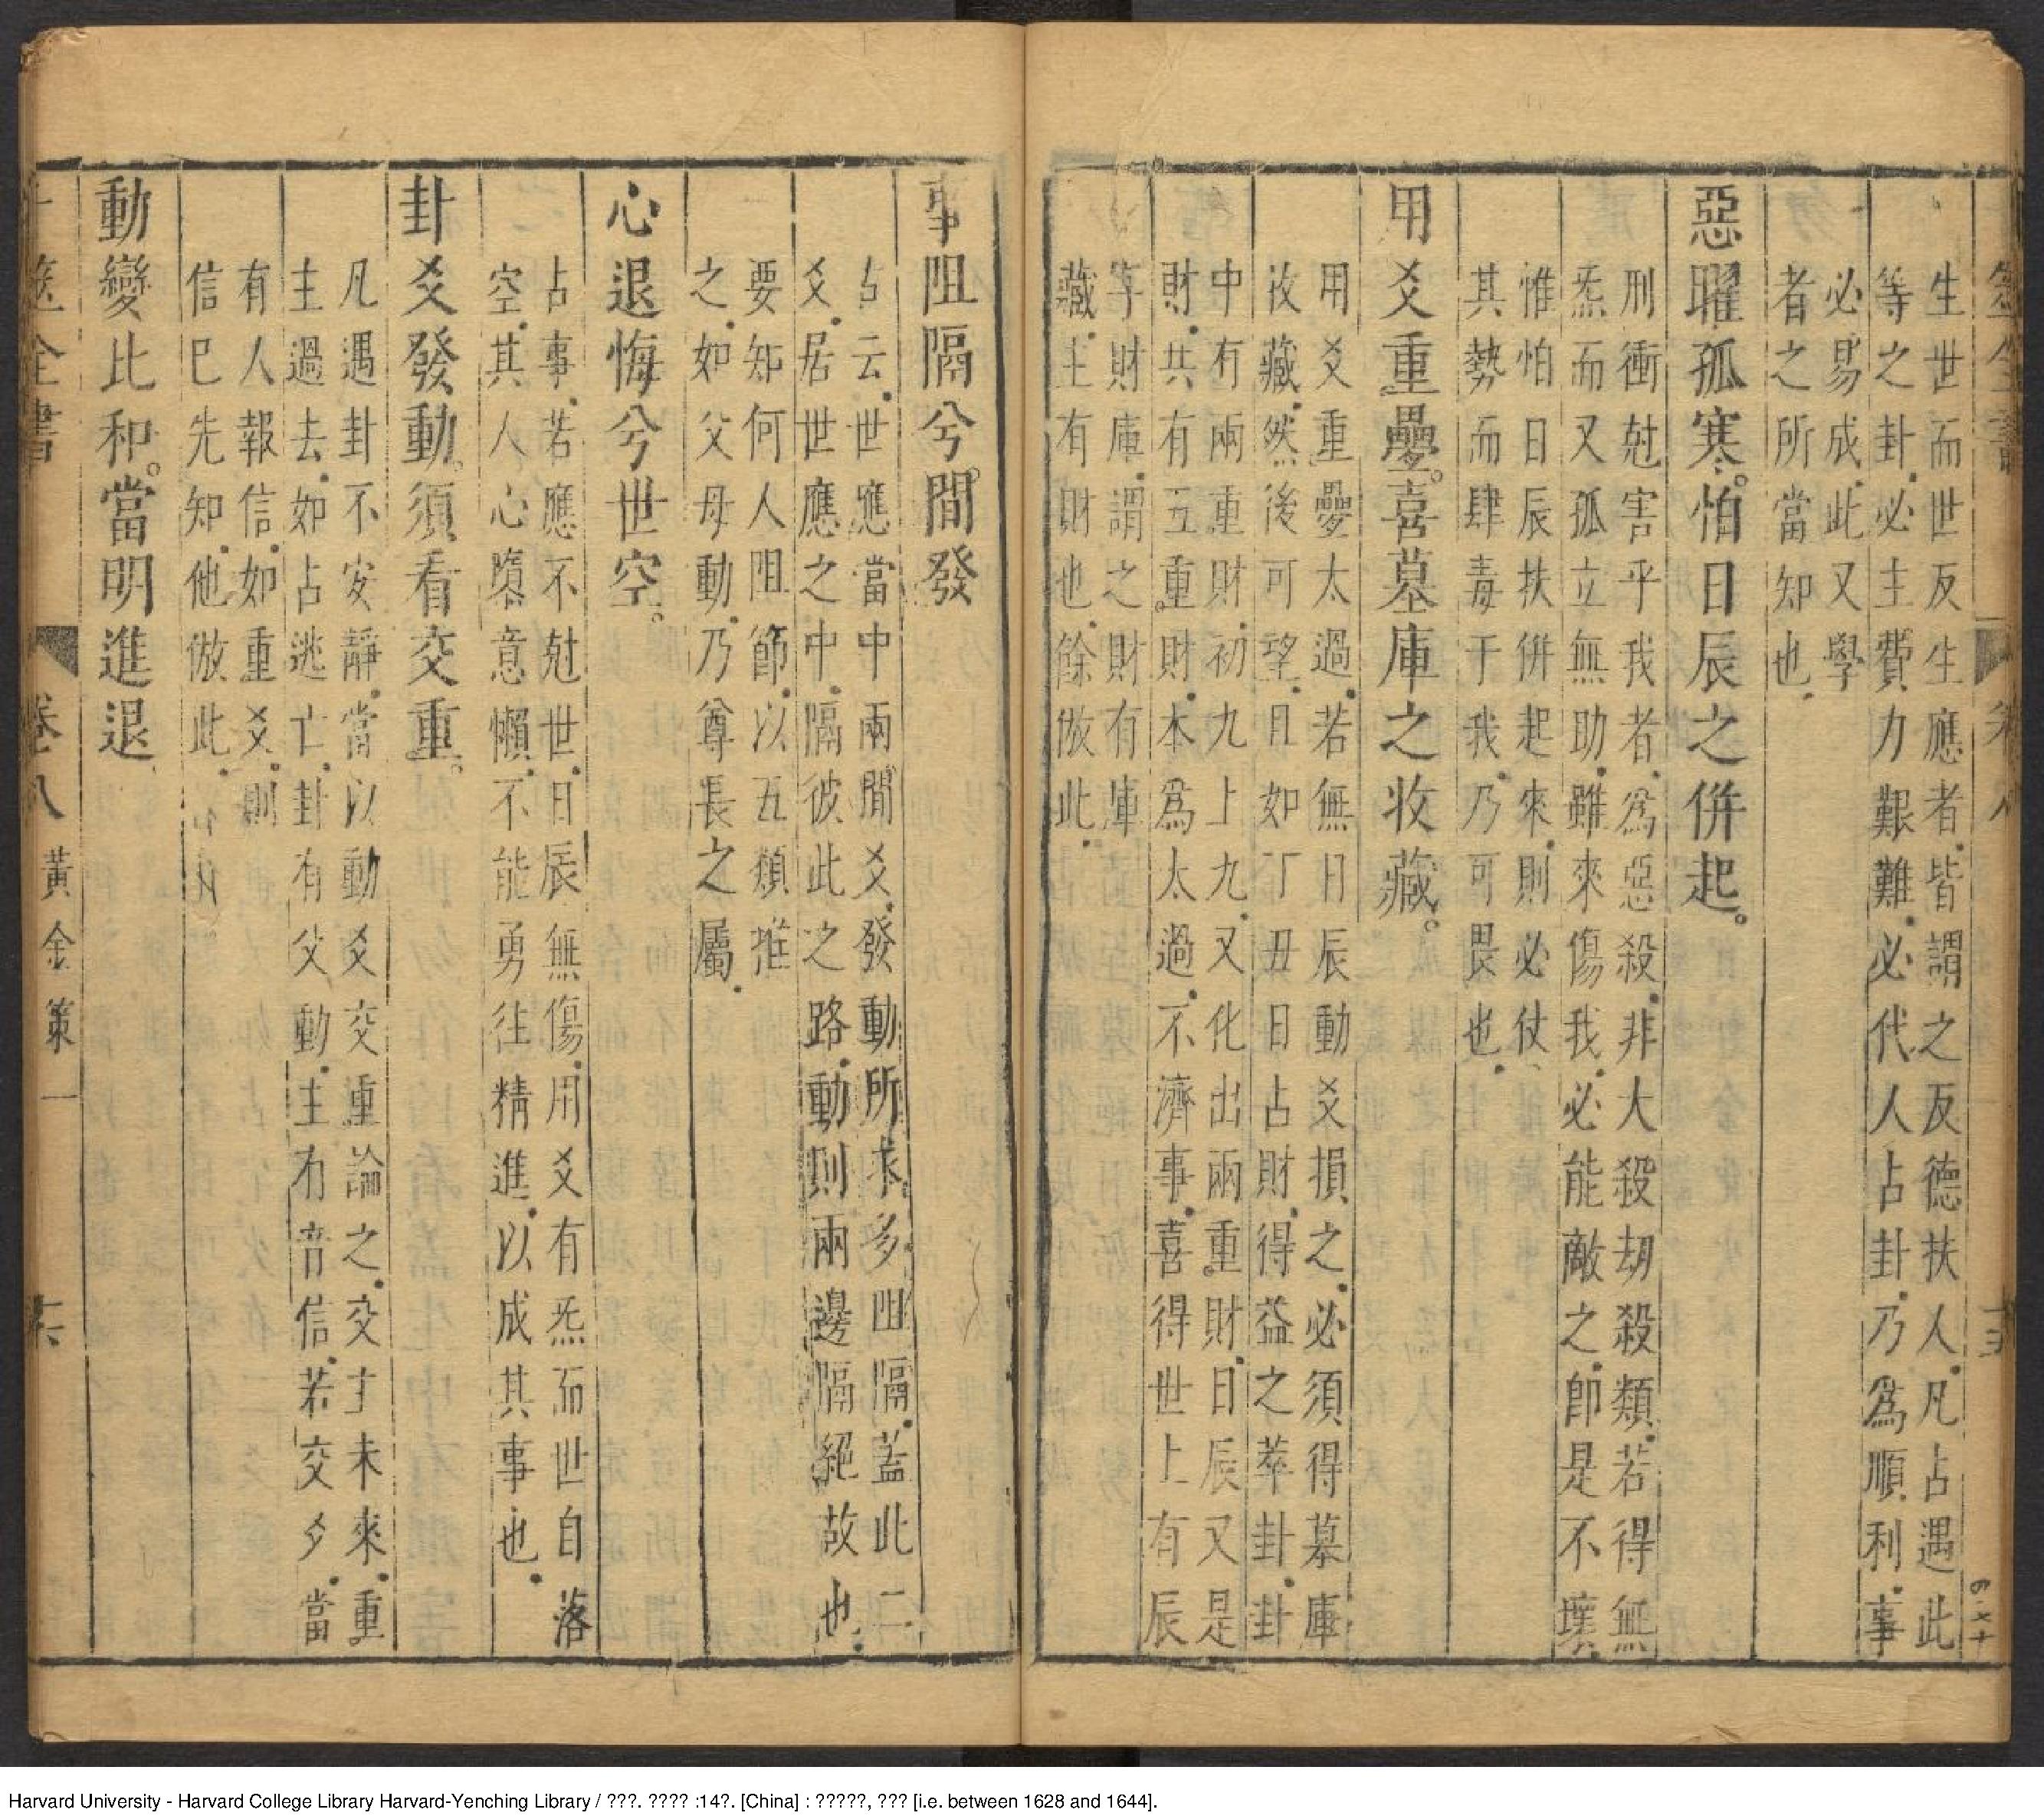 生世而世反生應者皆謂之反德扶人凡占遇此
等之卦必主費力艱難必代人占卦乃為順利事
必易成此又學
者之所當知也
惡曜孤寒怕日辰之併起
刑衝尅害乎我者為惡殺非大殺劫殺類若得無
炁而又孤立無助雖來傷我必能敵之即是不壞
惟怕日辰扶併起來則必仗
其勢而肆毒于我乃可畏也
用爻重疊喜墓庫之收藏
用爻重疊太過若無日辰動爻損之必須得墓庫
收藏然後可望且如丁丑日占財得益之萃卦卦
中有兩重財初九上九又化出兩重財日辰又是
財共有五重財本為太過不濟事喜得世上有辰
字財庫謂之財有庫
藏主有財也餘倣此
事阻隔兮間發
占云世應當中兩間爻發動所求多阻隔蓋此二
爻居世應之中隔彼此之路動則兩邊隔絕故也
要知何人阻節以五類推
之如父母動乃尊長之屬
心退悔兮世空
占事若應不尅世日辰無傷用爻有炁而世自落
空其人心隳意懶不能勇往精進以成其事也
卦爻發動須看交重
凡遇卦不安靜當以動爻交重論之交主未來重
主過去如占逃亡卦有父動主有音信若交爻當
有人報信如重爻則
信已先知他倣此
動變比和當明進退
全書
卷八
黃金策一
Harvard University - Harvard College Library Harvard-Yenching Library / ???. ???? :14?. [China] : ?????, ??? [i.e. between 1628 and 1644].